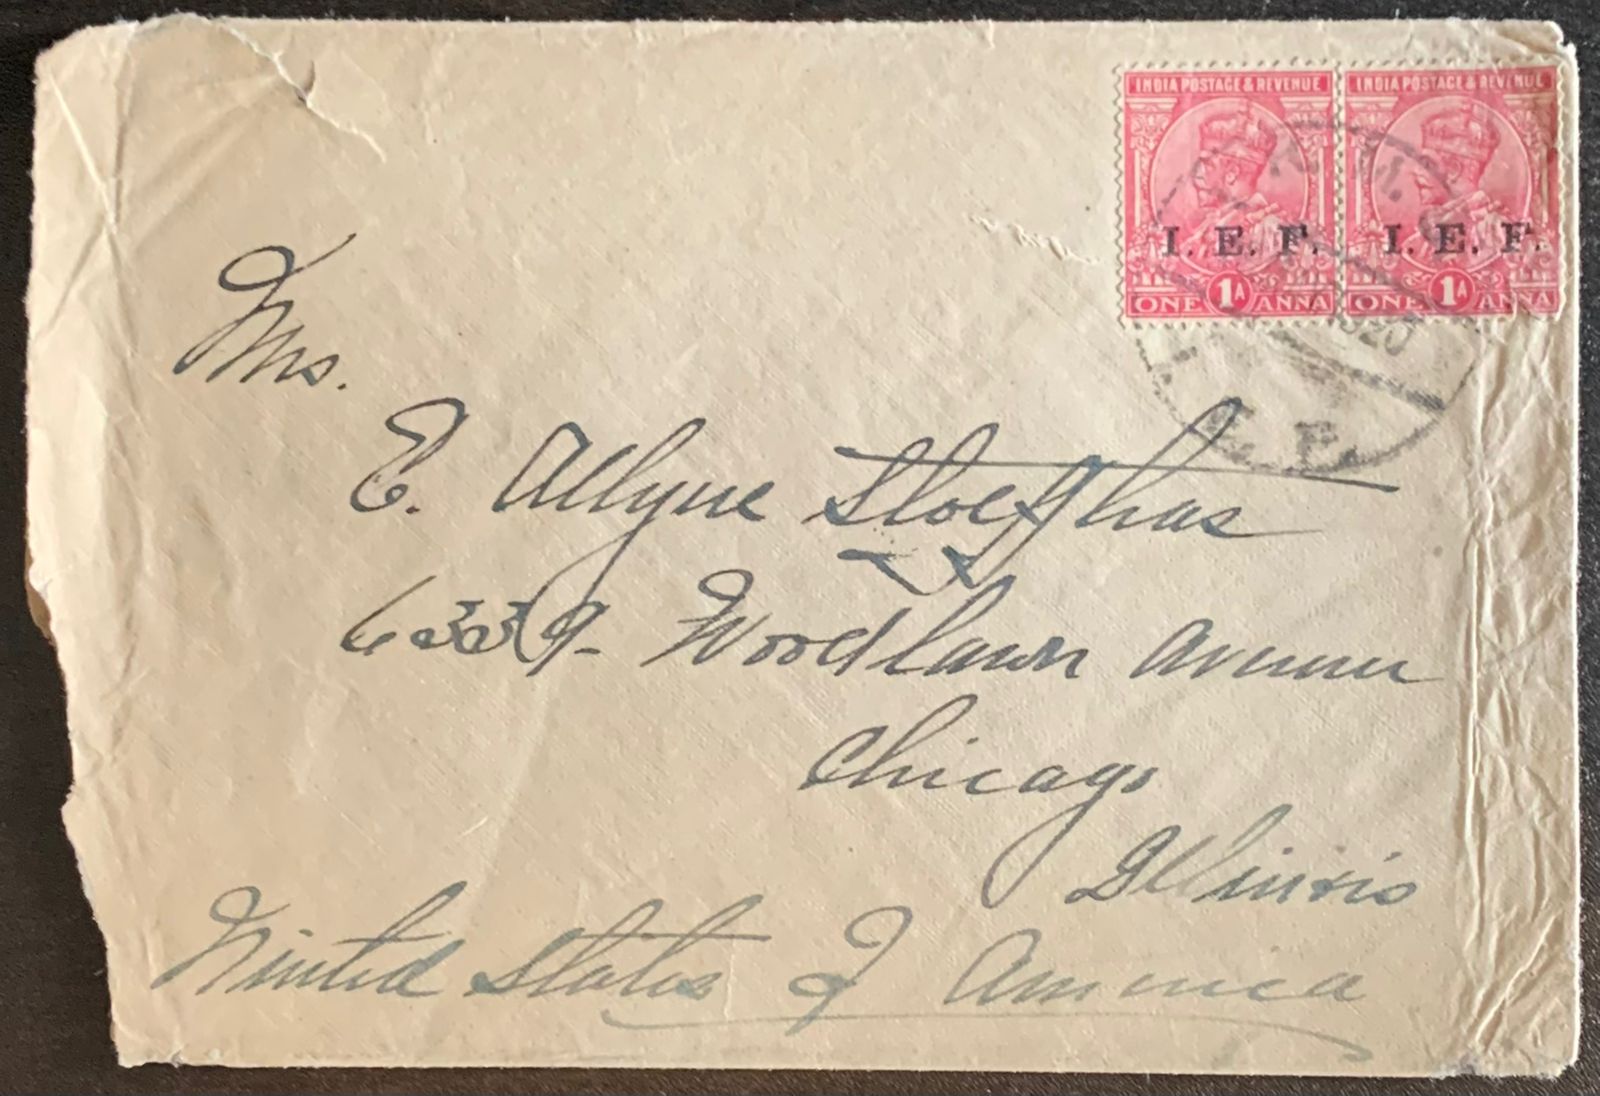 INDIA POSTAGE & REVENUE INDIA POSTAGE & REVENUE
I. E. F. I. E. F.
ONE 1A ANNA ONE 1A ANNA
Mrs.
E. Allyne
6339 Woodlawn Avenue
Chicago
Illinois
United States of America